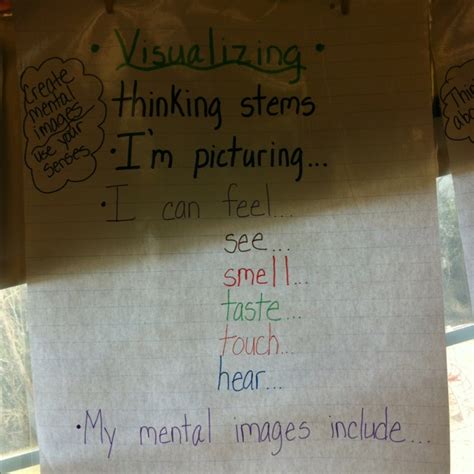 • Visualizing •
Create
mental
images
use your
senses
thinking stems
• I'm picturing...
• I can feel...
see...
smell...
taste...
touch...
hear...
• My mental images include...